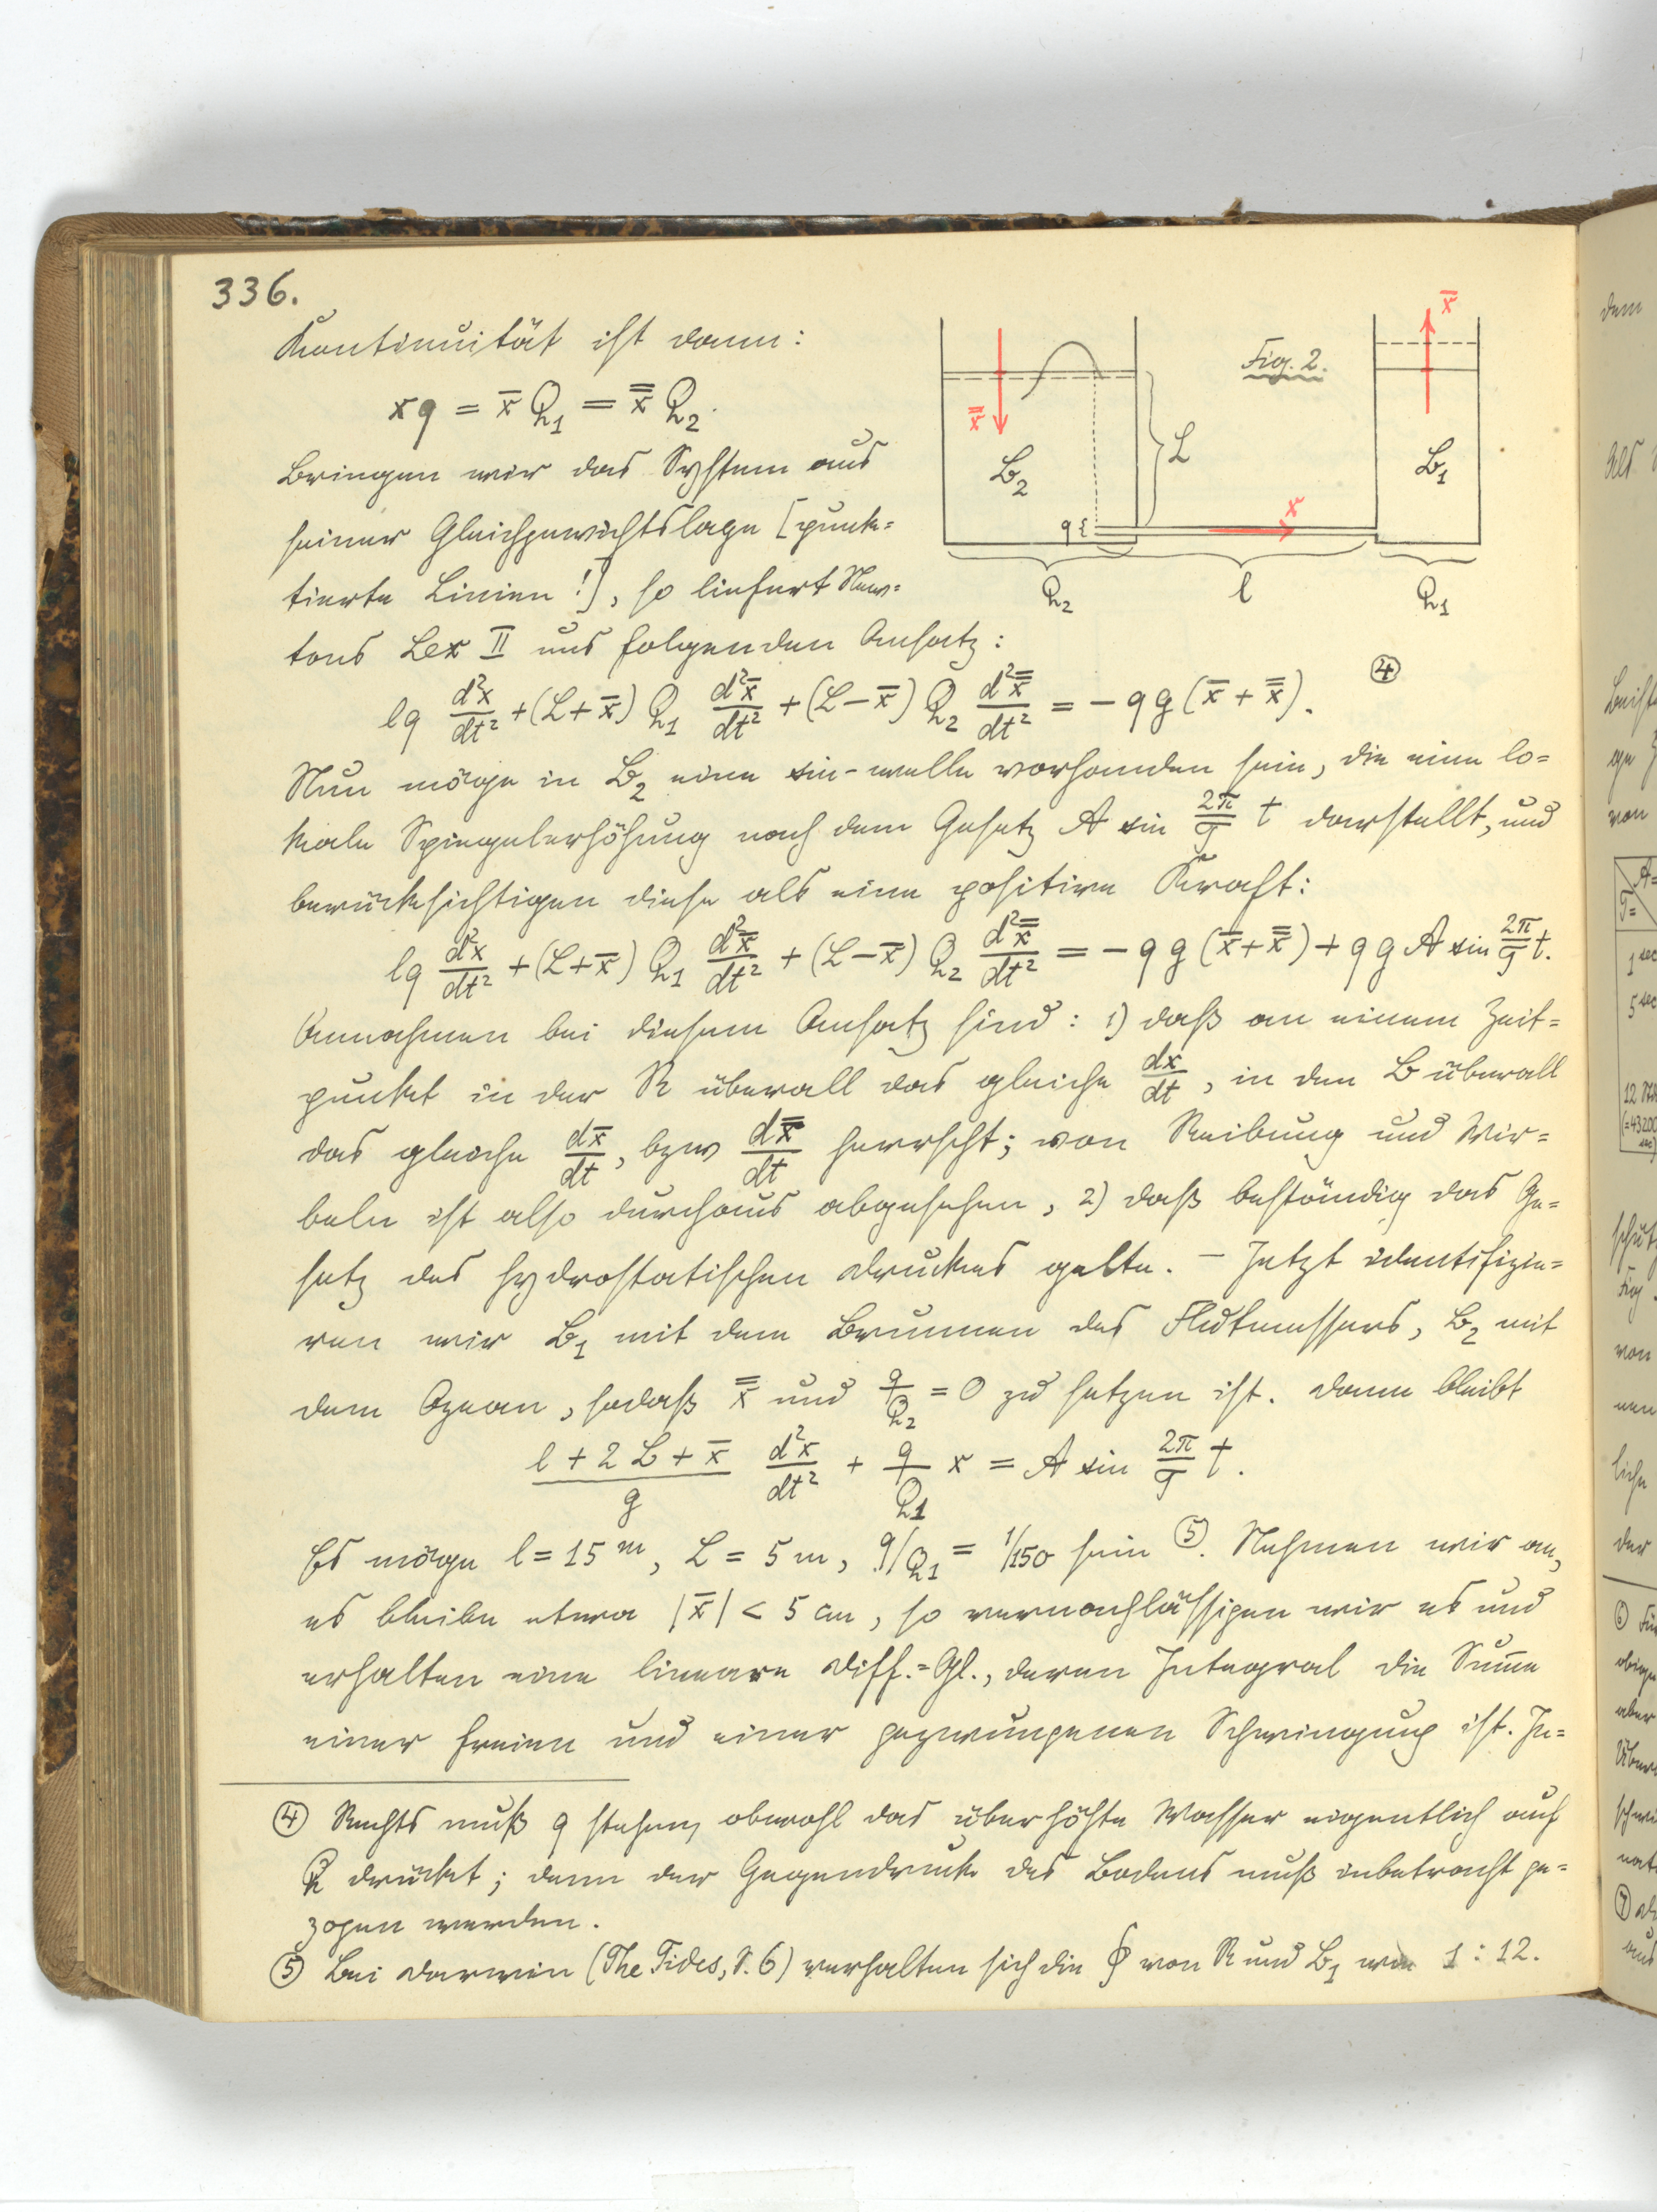 336.
Kontinuität ist dann:
xq = x̄ Q₁ = x̿ Q₂.
Bringen wir das System aus
seiner Gleichgewichtslage [punk=
tierte Linien!], so liefert New=
tons Lex II uns folgenden Ansatz:
Fig. 2.
x̄
x̿
B₂
L
B₁
x
q{
Q₂
l
Q₁
lq d²x/dt² + (L+x̄) Q₁ d²x̄/dt² + (L−x̄) Q₂ d²x̿/dt² = − q g (x̄ + x̿). ④
Nun möge in B₂ eine sin-welle vorhanden sein, die eine lo=
kale Spiegelerhöhung nach dem Gesetz A sin 2π/T t darstellt, und
berücksichtigen diese als eine positive Kraft:
lq d²x/dt² + (L+x̄) Q₁ d²x̄/dt² + (L−x̄) Q₂ d²x̿/dt² = − q g (x̄+x̿) + q g A sin 2π/T t.
Annahmen bei diesem Ansatz sind: 1) daß an einem Zeit=
punkt in der R überall das gleiche dx/dt, in den B überall
das gleiche dx̄/dt, bzw dx̿/dt herrscht; von Reibung und Wir=
beln ist also durchaus abgesehen, 2) daß beständig das Ge=
setz des hydrostatischen Druckes gelte. – Jetzt identifizie=
ren wir B₁ mit dem Brunnen des Flutmessers, B₂ mit
dem Ozean, sodaß x̿ und q/Q₂ = 0 zu setzen ist. Dann bleibt
(l + 2L + x̄)/g d²x/dt² + q/Q₁ x = A sin 2π/T t.
Es möge l = 15 m, L = 5 m, q/Q₁ = 1/150 sein ⑤. Nehmen wir an,
es bleibe etwa |x̄| < 5 cm, so vernachlässigen wir es und
erhalten eine lineare Diff.=Gl., deren Integral die Sum̅e
einer freien und einer gezwungenen Schwingung ist. Je=
④ Rechts muß q stehen, obwohl das überhöhte Wasser eigentlich auf
Q drückt; denn der Gegendruck des Bodens muß inbetracht ge=
zogen werden.
⑤ Bei Darwin (The Tides, S. 6) verhalten sich die ∮ von R und B₁ wie 1 : 12.
dem
von
1 sec
5 sec